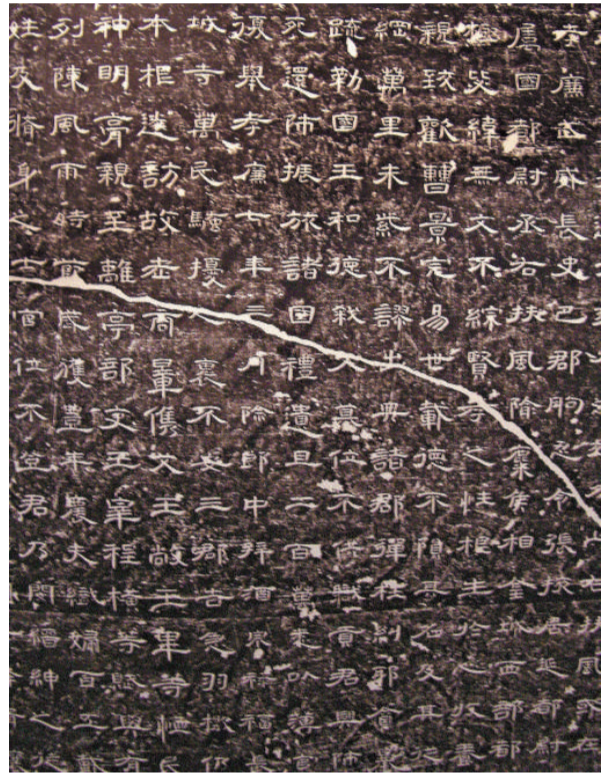 孝廉武威長史巴郡朐忍令張掖居延都尉
屬國都尉丞右扶風隃麋侯相金城西部都
極毖緯無文不綜賢孝之性根生於心收養
親致歡曹景完易世載德不隕其名及其從
綱萬里朱紫不謬出典諸郡彈枉糾邪貪暴
疏勒國王和德弒父篡位不供職貢君興師
死還師振旅諸國禮遺且二百萬悉以薄官
復舉孝廉七年三月除郎中拜酒泉祿福長
城寺萬民騷擾人裹不安三郡告急羽檄仍
本根遂訪故老商量儁艾王敞王畢等恤民
神明膏親至離亭部吏王宰程橫等賦與有
列陳風雨時節歲獲豐年農夫織婦百工戴
姓及脩身之士官位不登君乃閔縉紳之徒